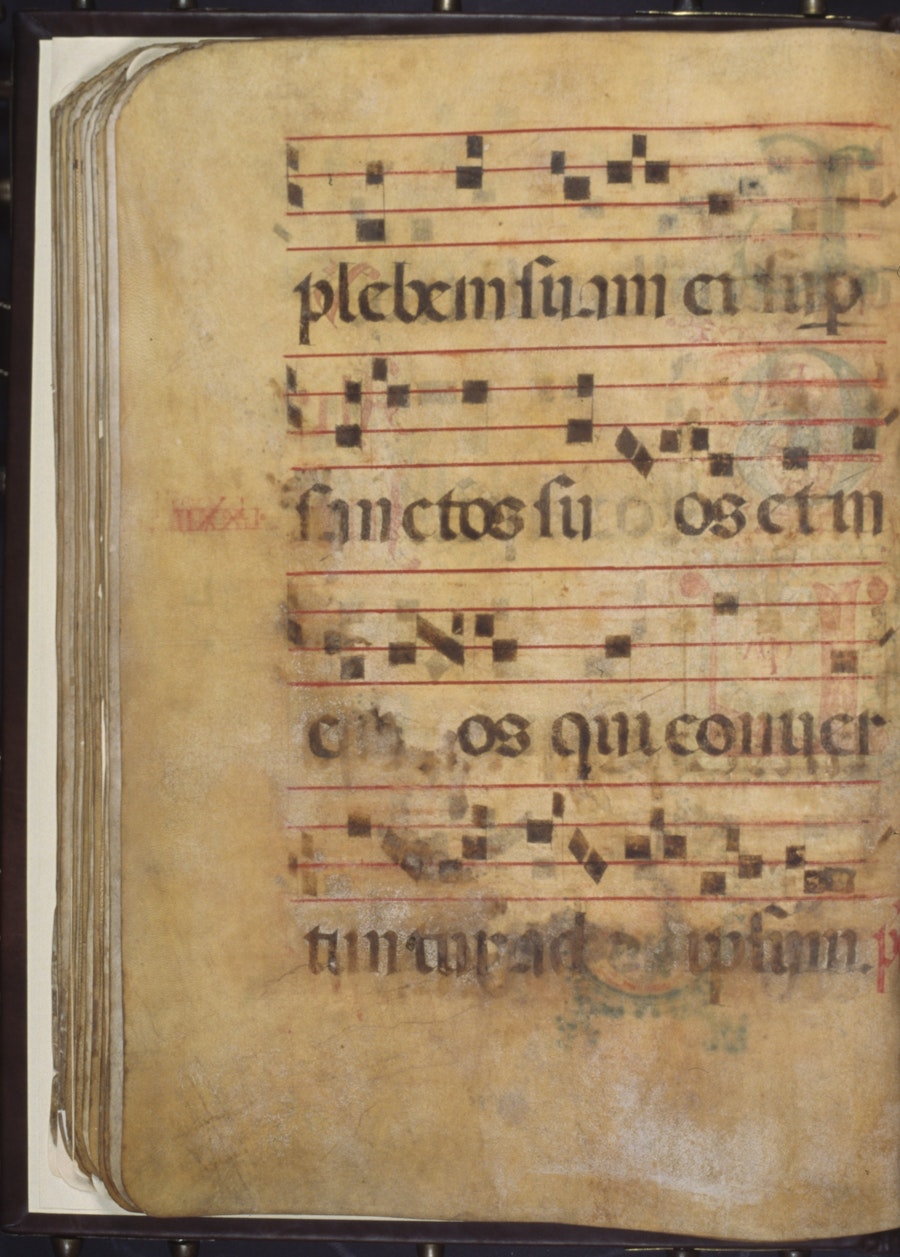 plebem suam et sup
sanctos su os et in
e os qui conuer
tuntur ad ipsum. p